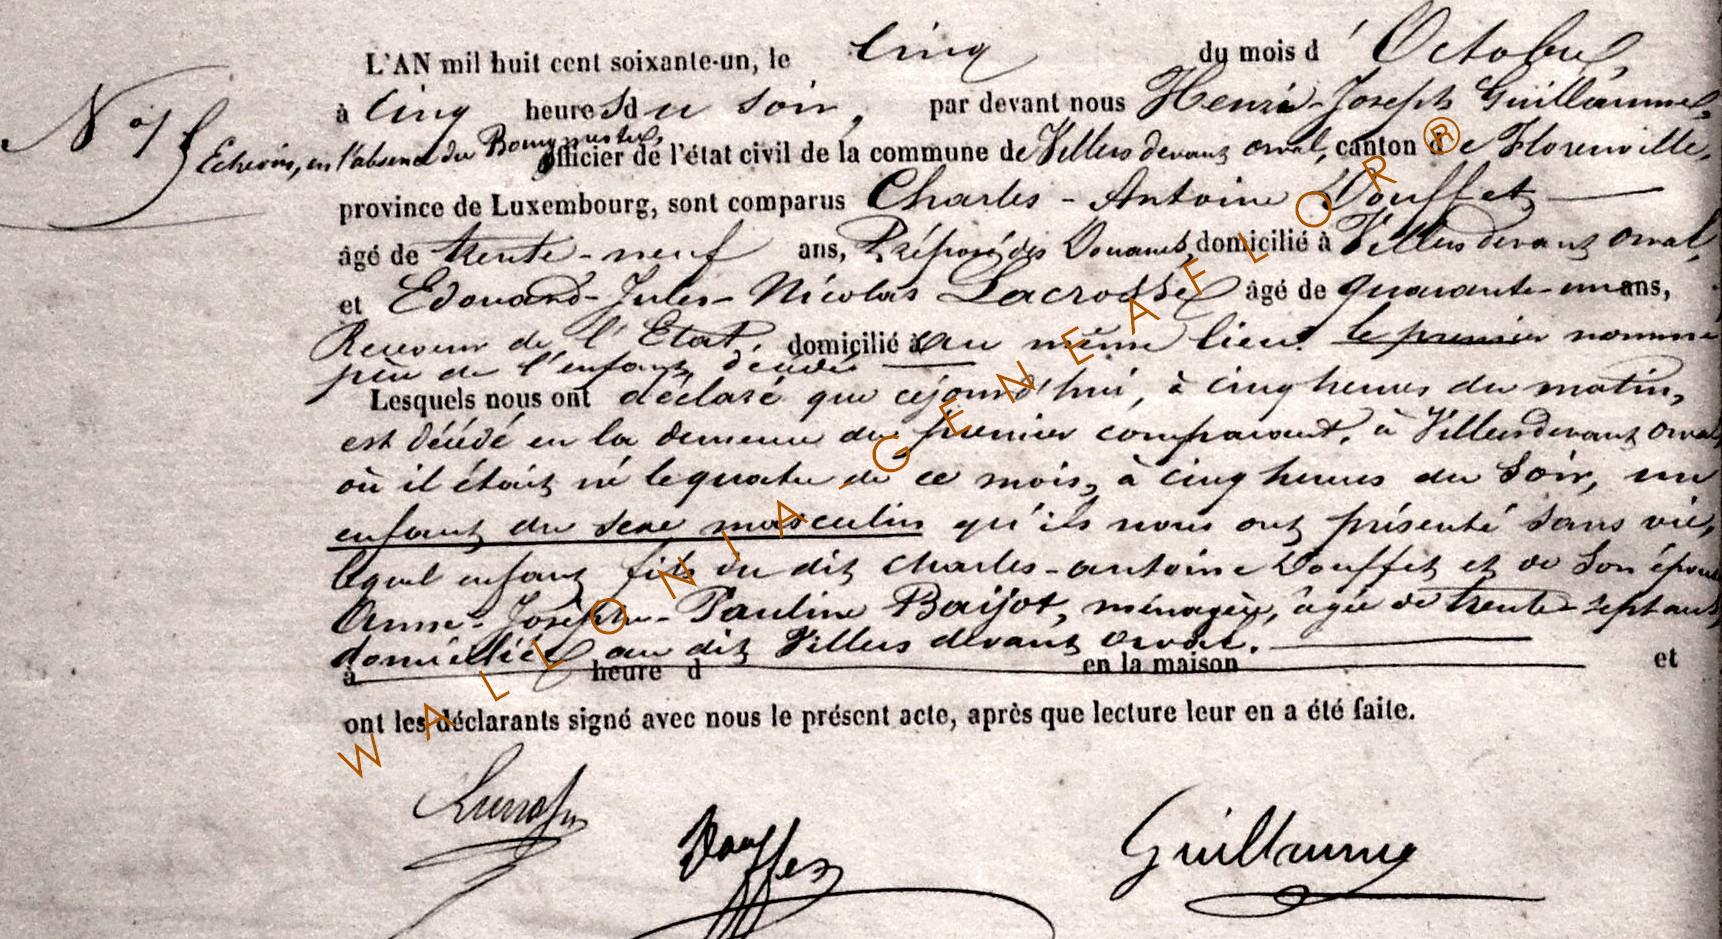 L'AN mil huit cent soixante-un, le cinq du mois d'Octobre,
à cinq heures du soir, par devant nous Henri-Joseph Guillaume,
N° 7
Echevin, en l'absence du Bourgmestre, officier de l'état civil de la commune de Villers devant orval, canton de Florenville,
province de Luxembourg, sont comparus Charles-Antoine Douffet
âgé de trente-neuf ans, Préposé des Douanes, domicilié à Villers devant orval,
et Edouard-Jules-Nicolas Lacrosse âgé de quarante-un ans,
Receveur de l'Etat, domicilié au même lieu. le premier nommé
père de l'enfant décédé
Lesquels nous ont déclaré que cejourd'hui, à cinq heures du matin,
est décédé en la demeure du premier comparant, à Villers devant orval,
où il était né le quatre de ce mois, à cinq heures du soir, un
enfant du sexe masculin qu'ils nous ont présenté sans vie,
lequel enfant fils du dit Charles-antoine Douffet et de son épouse
Anne-Josèphe-Pauline Baijot, ménagère, âgée de trente-sept ans,
domiciliée au dit Villers devant orval.
à heure d en la maison et
ont les déclarants signé avec nous le présent acte, après que lecture leur en a été faite.
Douffet Guillaume
WALLONIA-GENEAFLOR®